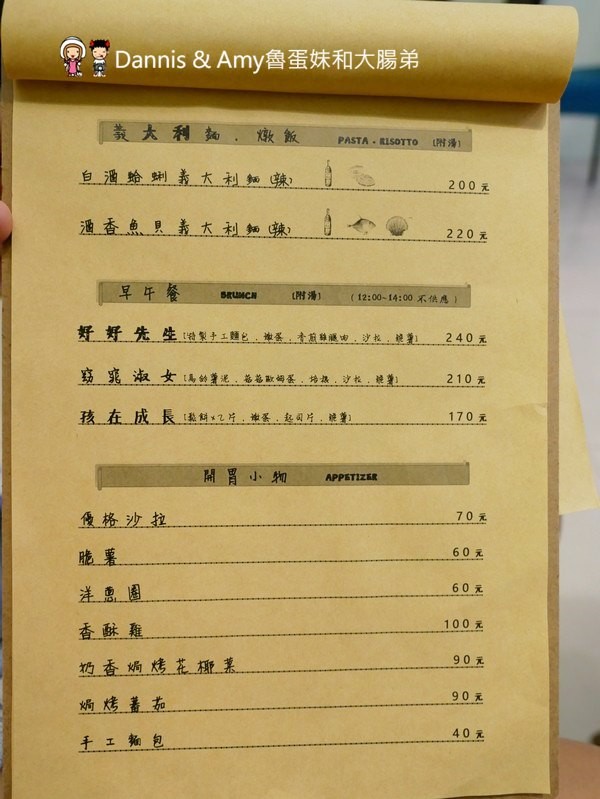 Dannis & Amy魯蛋妹和大腸弟
義大利麵．燉飯 PASTA．RISOTTO [附湯]
白酒蛤蜊義大利麵(辣) 200元
酒香魚貝義大利麵(辣) 220元
早午餐 BRUNCH [附湯] (12:00~14:00 不供應)
好好先生 [特製手工麵包．襯蛋．香煎雞腿肉．沙拉．脆薯] 240元
窈窕淑女 [馬鈴薯泥．菇菇歐姆蛋．培根．沙拉．脆薯] 210元
孩在成長 [鬆餅x2片．襯蛋．起司片．脆薯] 170元
開胃小物 APPETIZER
優格沙拉 70元
脆薯 60元
洋蔥圈 60元
香酥雞 100元
奶香焗烤花椰菜 90元
焗烤蕃茄 90元
手工麵包 40元